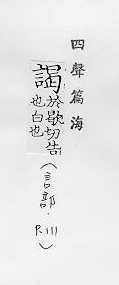 四聲篇海
謁
於歇切告
也白也
（言部．
P.111）